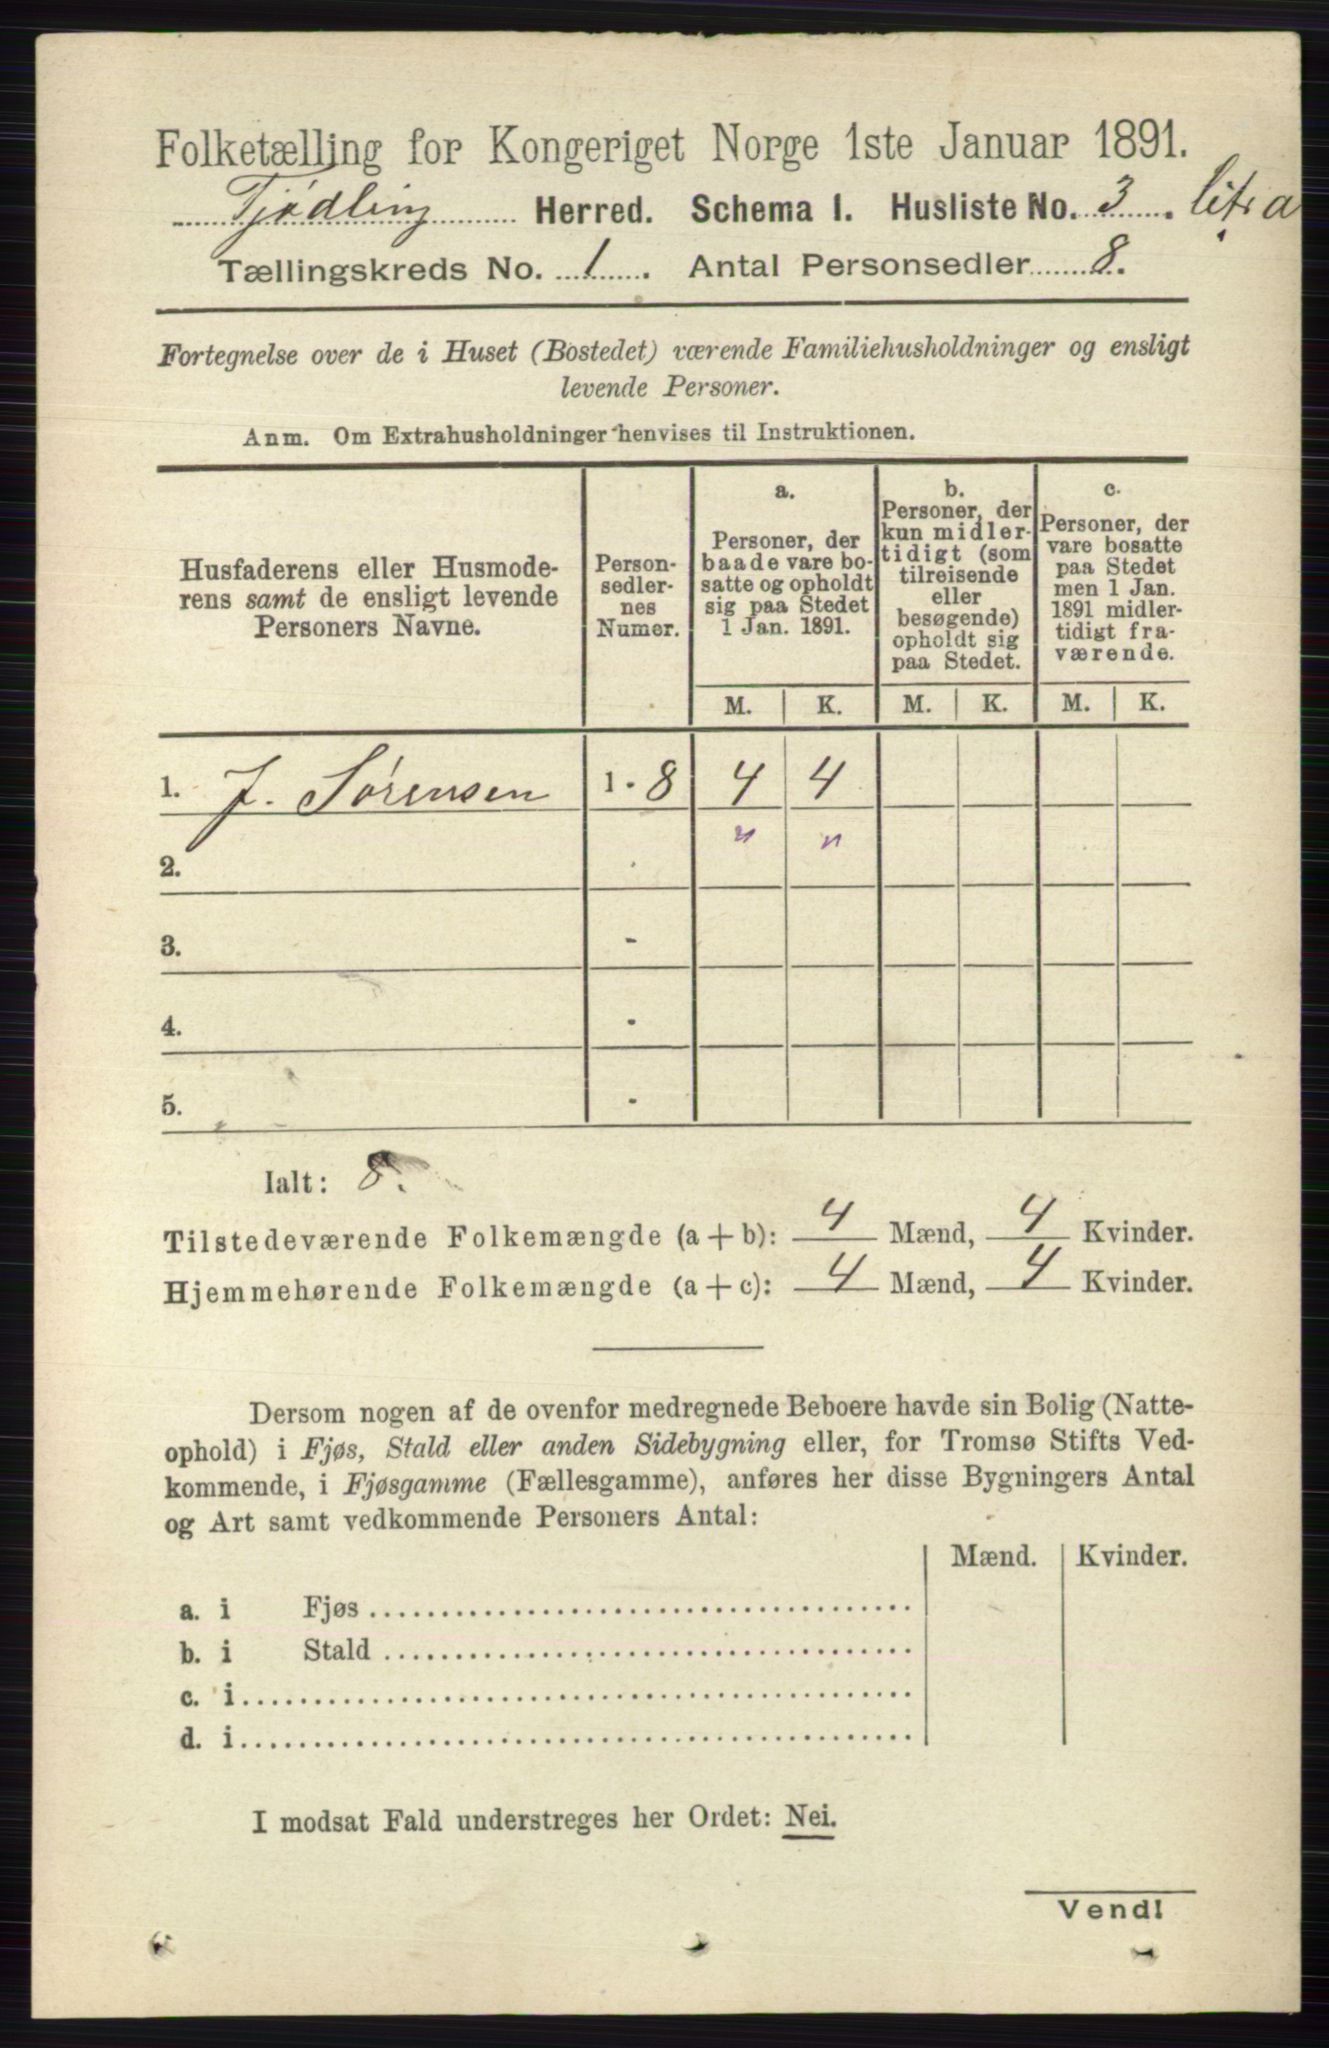 Folketælling for Kongeriget Norge 1ste Januar 1891.
Tjødling Herred. Schema 1. Husliste No. 3. litr a
Tællingskreds No. 1. Antal Personsedler 8.
Fortegnelse over de i Huset (Bostedet) værende Familiehusholdninger og ensligt
levende Personer.
Anm. Om Extrahusholdninger henvises til Instruktionen.
Husfaderens eller Husmode-
rens samt de ensligt levende
Personers Navne.
Person-
sedler-
nes
Numer.
a.
Personer, der
baade vare bo-
satte og opholdt
sig paa Stedet
1 Jan. 1891.
b.
Personer, der
kun midler-
tidigt (som
tilreisende
eller
besøgende)
opholdt sig
paa Stedet.
c.
Personer, der
vare bosatte
paa Stedet
men 1 Jan.
1891 midler-
tidigt fra-
værende.
M. K. M. K. M. K.
1. J. Sørensen 1 - 8 4 4
2. - " "
3. -
4. -
5. -
Ialt: 8.
Tilstedeværende Folkemængde (a + b): 4 Mænd, 4 Kvinder.
Hjemmehørende Folkemængde (a + c): 4 Mænd, 4 Kvinder.
Dersom nogen af de ovenfor medregnede Beboere havde sin Bolig (Natte-
ophold) i Fjøs, Stald eller anden Sidebygning eller, for Tromsø Stifts Ved-
kommende, i Fjøsgamme (Fællesgamme), anføres her disse Bygningers Antal
og Art samt vedkommende Personers Antal:
Mænd. Kvinder.
a. i Fjøs
b. i Stald
c. i
d. i
I modsat Fald understreges her Ordet: Nei.
Vend!